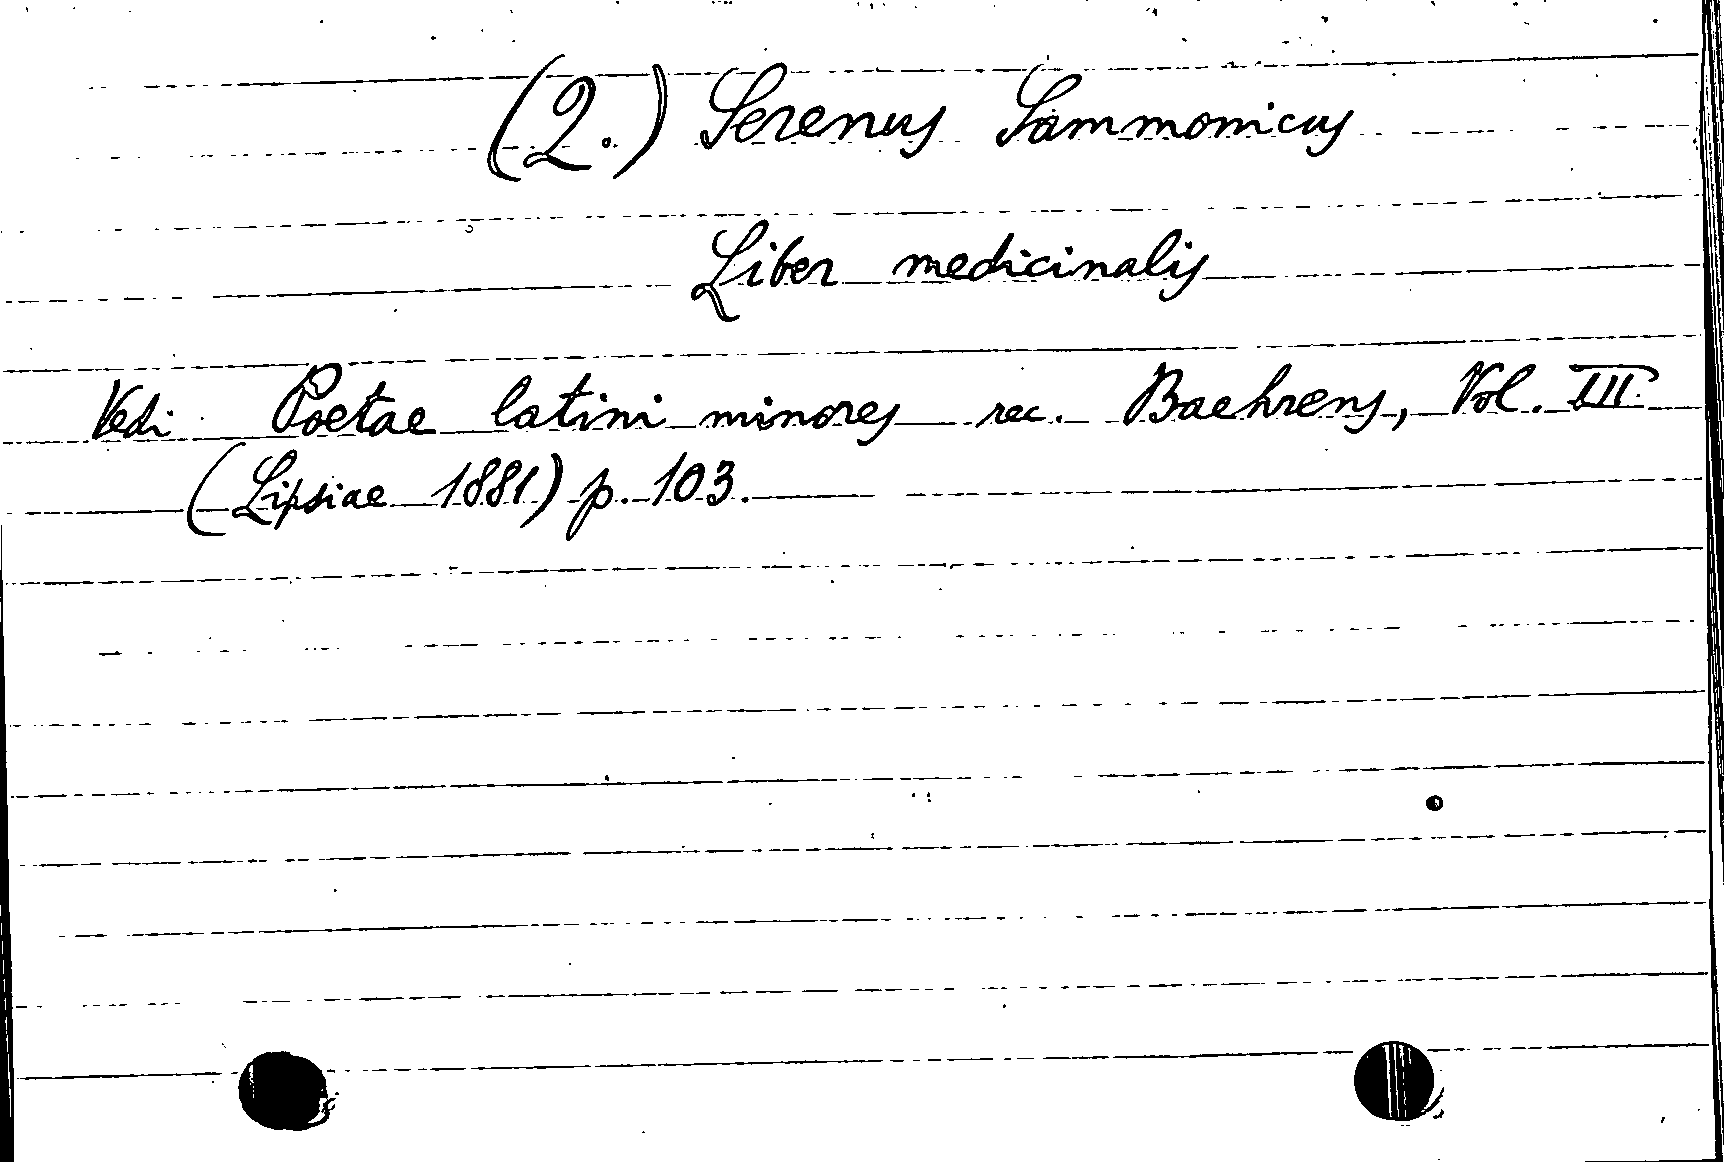 (2.) Serenus Sammonicus
Liber medicinalis
Vedi Poetae latini minores rec. Baehrens, Vol. III
(Lipsiae 1881) p. 103.